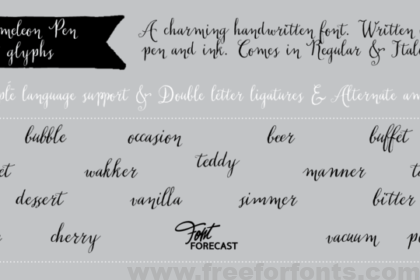 meleon Pen
glyphs
A charming handwritten font. Written
pen and ink. Comes in Regular & Ital
ple language support & Double letter ligatures & Alternate an
bubble occasion beer buffet
wakker teddy manner
dessert vanilla simmer bitter
cherry Font FORECAST vacuum
www.freeforfonts.com